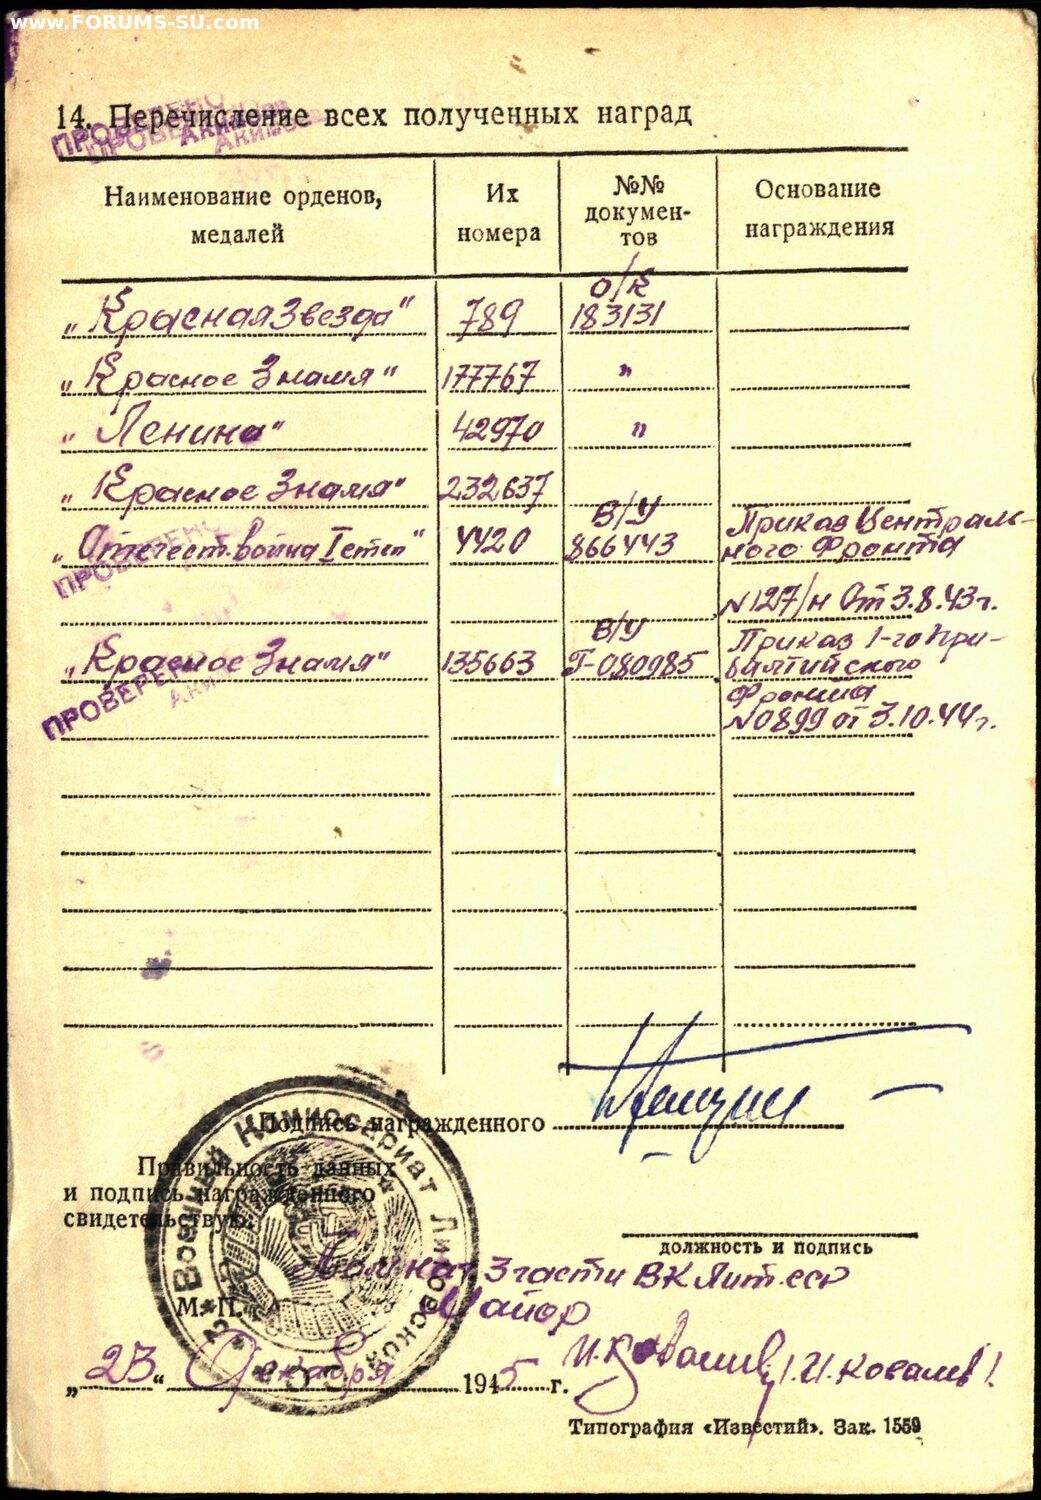 www.FORUMS-SU.com
14. Перечисление всех полученных наград
ПРОВЕРЕНО
ПРОВЕРЕНО
Наименование орденов, медалей
Их номера
№№ докумен-тов
Основание награждения
о/к
„Красная Звезда" 789 183131
„Красное Знамя" 177767 "
„Ленина" 42970 "
„Красное Знамя" 232637
В/У Приказ Централь-
„Отечест. война I степ" 4420 866443 ного Фронта
ПРОВЕРЕНО
№127/н От 3.8.43г.
В/У Приказ 1-го При-
„Красное Знамя" 135663 Г-080985 балтийского
Фронта
ПРОВЕРЕНО
№0899 от 3.10.44г.
Подпись награжденного
Правильность данных
и подпись награжденного
свидетельствую:
должность и подпись
Военный Комиссариат Литовской ССР
Пом нач 3 части ВК Лит ССР
М. П. Майор
И. Ковалев /И. Ковалев/.
„23" Декабря 1945 г.
Типография «Известий». Зак. 1559